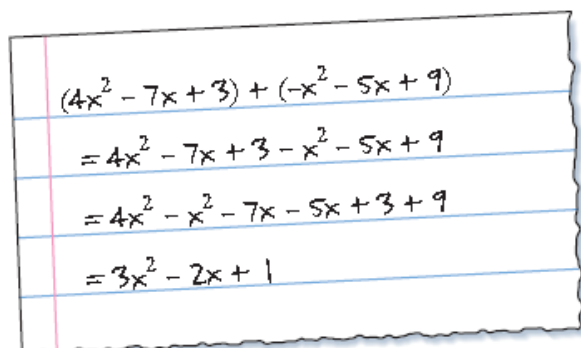 (4x² - 7x + 3) + (-x² - 5x + 9)
= 4x² - 7x + 3 - x² - 5x + 9
= 4x² - x² - 7x - 5x + 3 + 9
= 3x² - 2x + 1